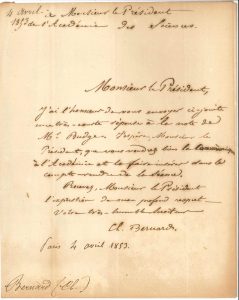 4 avril
1853
à Monsieur le Président
de l'Académie des Sciences
Monsieur le Président,
J'ai l'honneur de vous envoyer ci-jointe
une très courte réponse à la note de
Mr Budge. J'espère, Monsieur le
Président, que vous voudrez bien la
à l'Académie et la faire insérer dans le
compte rendu de la Séance.
Recevez, Monsieur le Président
l'expression de mon profond respect
Votre très humble serviteur
Cl. Bernard
Paris 4 avril 1853.
Bernard (Cl.)